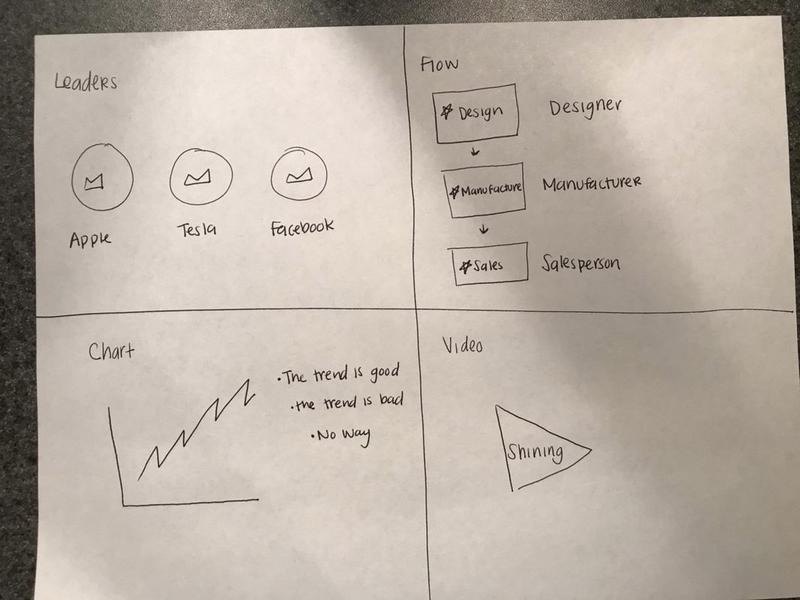 Leaders
Apple
Tesla
Facebook
Flow
Design
Designer
Manufacture
Manufacturer
Sales
Salesperson
Chart
•The trend is good
•the trend is bad
•No way
Video
Shining